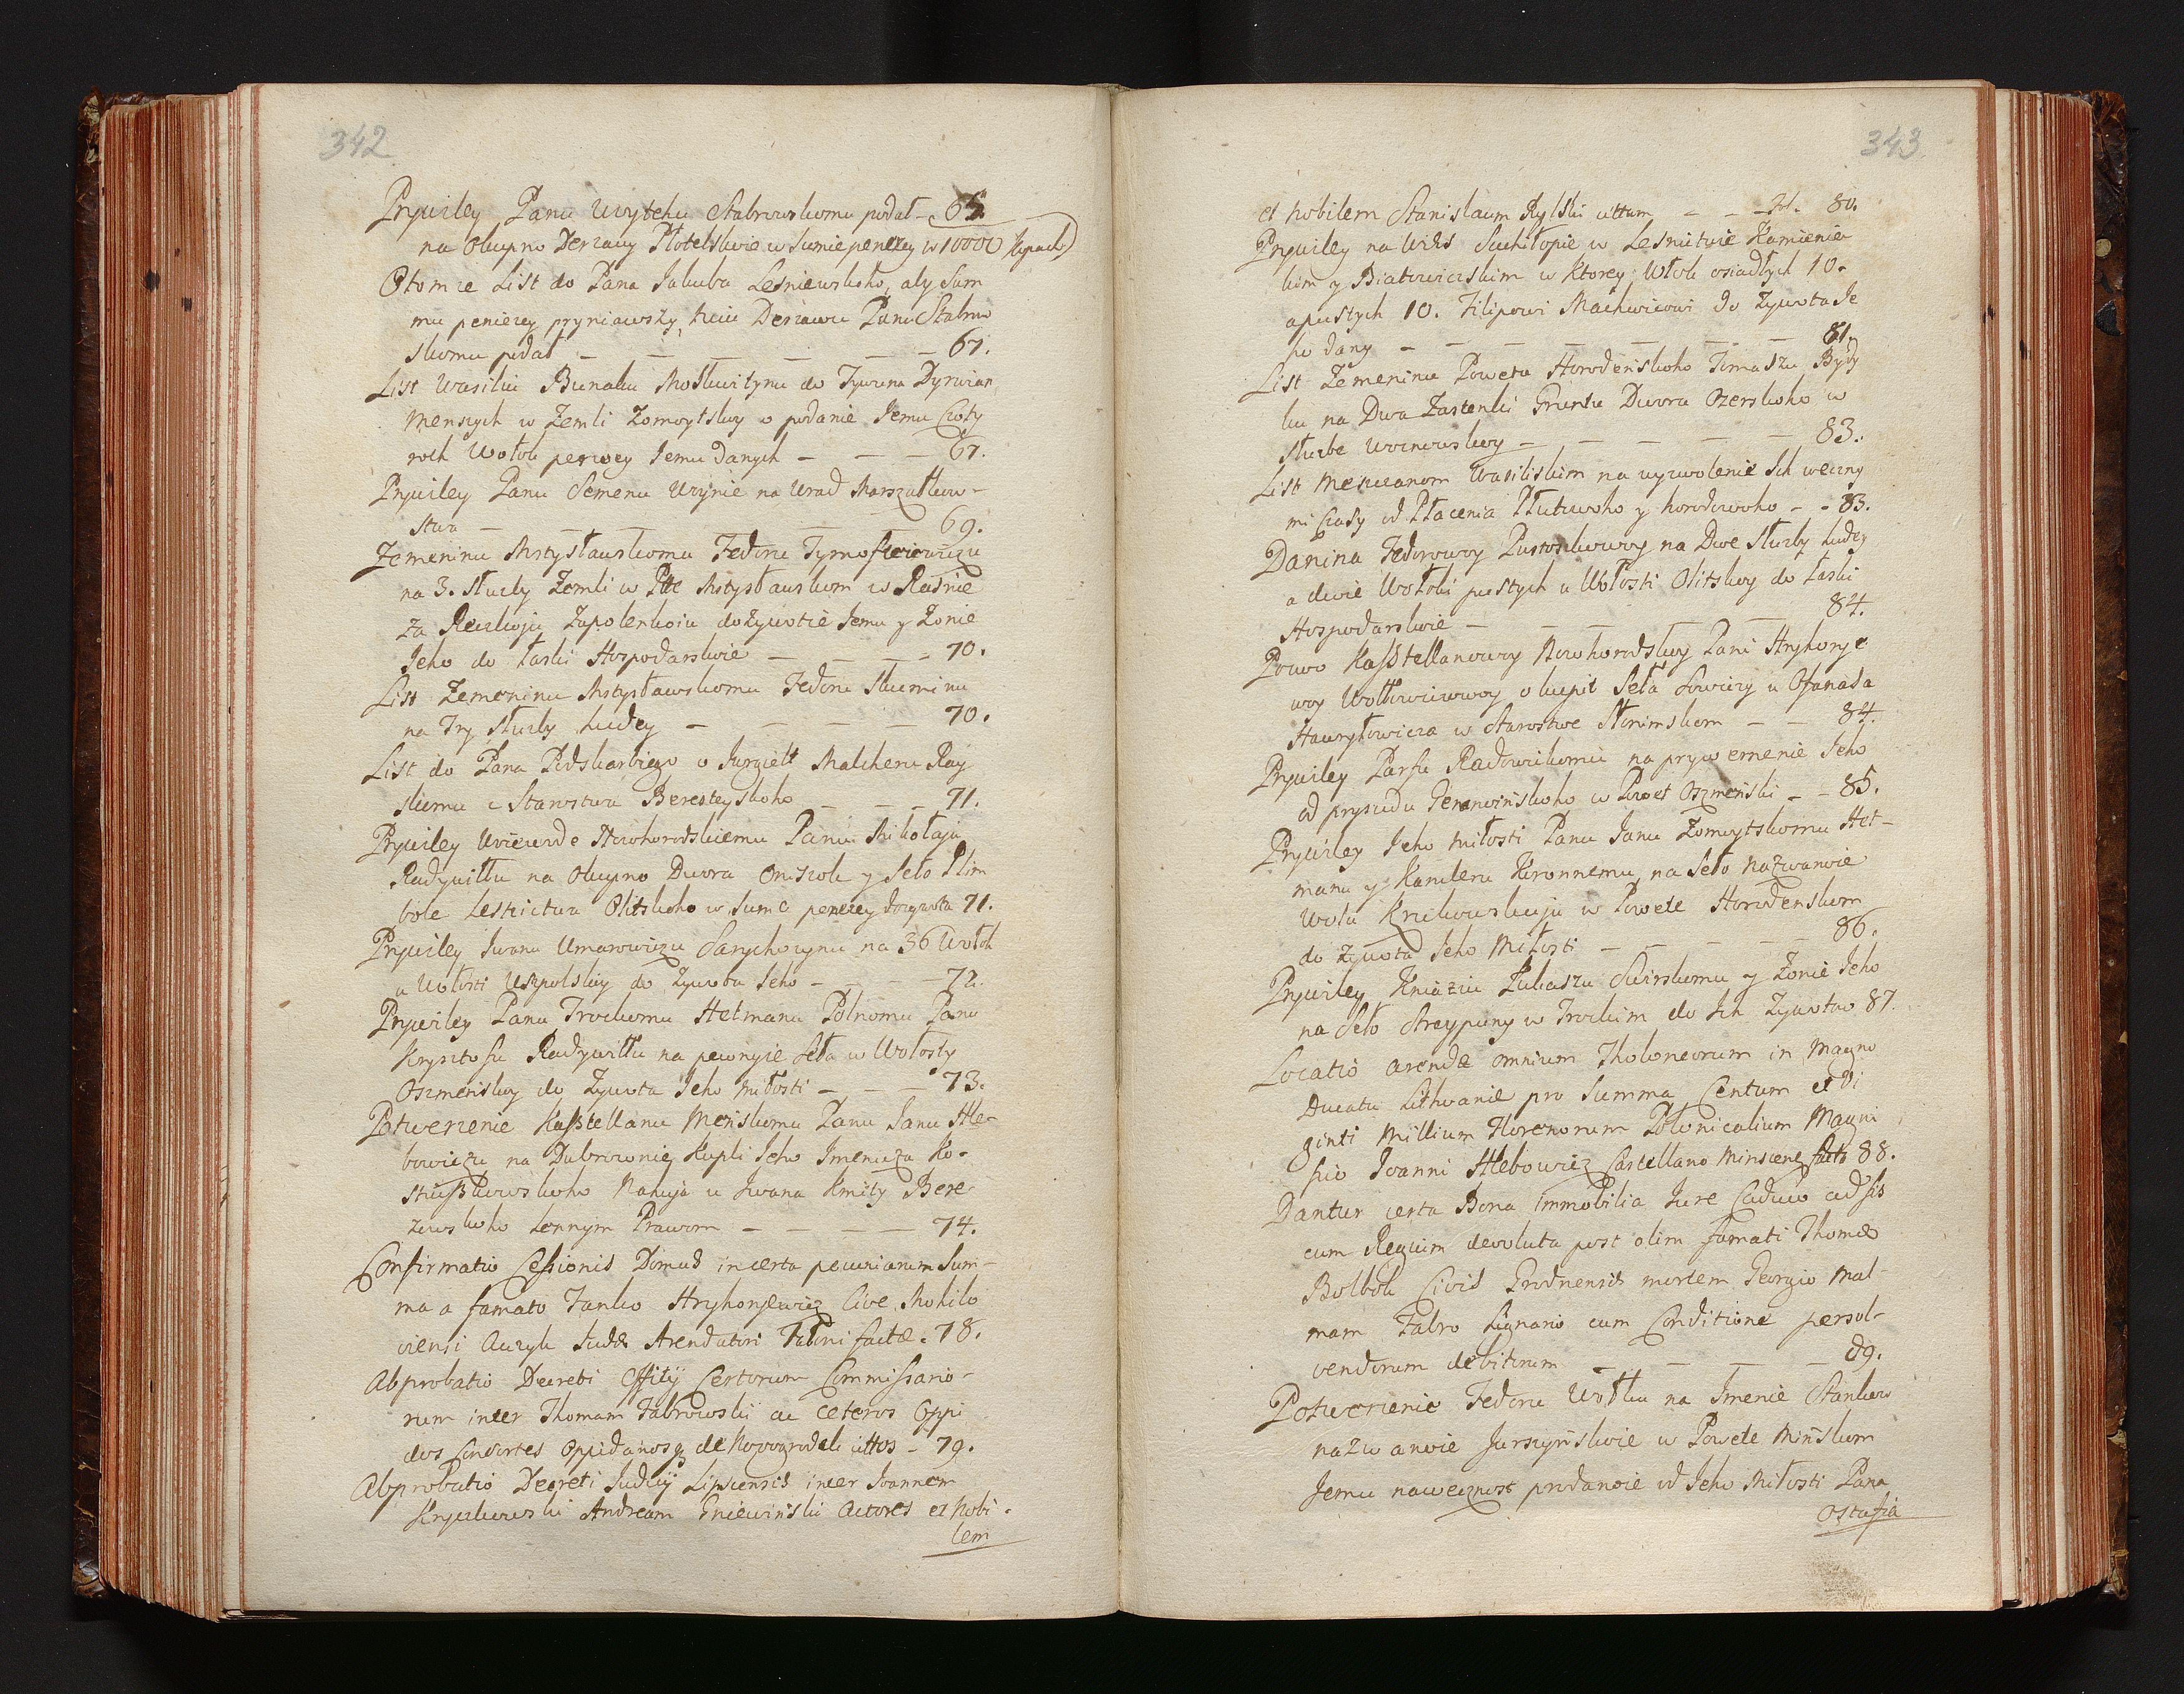 342
Prywiley Panu Woytehu Stabrowskomu podał – 65.
na Okupno Derzawy Płotelskoie w Sumie penezey w 10000 kopach
O tom ze List do Pana Jakuba Leśniewskoho, aby Sum
mu penezey pryniawszy, tuiu Derzawu Panu Stabrow
skomu podał – – – – – – 67.
List Wasiliu Bunaku Moskwitynu do Tywuna Dyrwian
Menszych w Zemli Zomoytskoy o podanie Jemu Czoty
roch Wołok perwey Jemu danych – – – 67.
Prywiley Panu Semenu Woynie na Urad Marszałkow-
stwa – – – – – – 69.
Zemeninu Mstysławskomu Fedoru Tymofieiewiczu
na 3. Służby Zemli w Pte Mstysławskom w Raśnie
za Reczkoju Zapolenkoiu do Zywotie Jemu y Żonie
Jeho do łaski Hospodarskoie – – – – 70.
List Zemeninu Mstysławskomu Fedoru Skuminu
na Try Służby Ludey – – – – 70.
List do Pana Podskarbiego o Jurgielt Malcheru Ray
skomu z Starostwa Beresteyskoho – – – 71.
Prywiley Woiewode Nowhorodskiemu Panu Mikołaju
Radywiłłu na Okupno Dwora Oniszok y Seło Plim
bole Lestnictwa Olitskoho w Sume penezey dozywota 71.
Prywiley Iwanu Umarowiczu Sarychozynu na 36 Wołok
u Wołosti Uszpolskoy do Zywota Jeho – – – – 72.
Prywiley Panu Trockomu Hetmanu Polnomu Panu
Krysztofu Radywiłłu na pewnyie Seła w Wołosty
Oszmenskoy do Zywota Jeho Miłosti – – – 73.
Potwerzenie Kasztellanu Menskomu Panu Janu Hle-
bowiczu na Dubrowniey Kupli Jeho Imenicza Ko-
stiuszkowskoho Nahuja u Iwana Kmity Bere
zowskoho Lennym Prawom – – – – 74.
Confirmatio Cessionis Domus incerta pecuniarum Sum-
ma a famato Janko Hryhoryewicz Cive Mohilo
viensi Auzyk Judæ Arendatori Taloni factæ. 78.
Abprobatio Decreti Offitij Certorum Commissario-
rum inter Thomam Dabrowski ac ceteros Oppi
dos Consortes oppidanosq de Nowogrodek ittos – 79.
Abprobatio Decreti Judicij Lipscensis inter Joannem
Kryczkowski Andream Gniewinski Actores et Nobi-
lem
343
et Nobilem Stanislaum Rylski ittum – – – Fol. 80.
Prywiley na Wieś Suchłopie w Lesnictwie Kamieniec
kim y Białowieskim w ktorey Włok osiadłych 10.
a pustych 10. Filipowi Machwicowi do Zywota Je
ho dany – – – – – – 81.
List Zemeninu Poweta Horodenskoho Tomaszu Bydy
ku na Dwa Zastenki Gruntu Dwora Ozerskoho w
Służbe Woznowskoy – – – – – 83.
List Meszczanom Wasiliskim na wyzwolenie Ich weczny
mi Czasy od Płacenia Płatowoho y horodowoho – – 83.
Danina Fedorowoy Pustoszkowoy na Dwe Służby Ludey
a dwie Wołoki pustych u Wołosti Olitskoy do łaski
Hospodarskoie – – – – – 84.
Prawo Kasztellanowoy Nowhorodskoy Pani Hryhorye
woy Wołłowiczowoy okupit Seła Lowizy u Ofanasa
Hawryłowicza w Starostwe Słonimskom – – 84.
Prywiley Parfu Radowickomu na prywernenie Jeho
od prysudu Geranoinskoho w Powet Oszmenski – – 85.
Prywiley Jeho Miłosti Panu Janu Zomoytskomu Het-
manu y Kancleru Koronnemu na Seło nazwanoie
Wola Kruhowskuju w Powete Horodenskom
do Zywota Jeho Miłosti – – – – – 86.
Prywiley Kniaziu Lukaszu Swirskomu y Żonie Jeho
na Seło Streypuny w Trockim do Ich Zywotow 87.
Locatio arendæ omnium Tholoneorum in Magno
Ducatu Lithvaniæ pro Summa Centum et Vi
ginti Millium Florenorum Polonicalium Magni
fico Joanni Hlebowicz Castellano Minscenȩ facta 88.
Dantur certa Bona Immobilia Jure Caduco ad Sis
cum Regium devoluta post olim famati Thomæ
Bolbok Civis Grodnensis mortem Georgio Mal-
mam Fabro Lignario cum Conditione persol-
vendorum debitorum – – – – 89.
Potwerzenie Fedoru Wołku na Imenie Stankow
nazwanoie Jurszyńskoie w Powete Minskom
Jemu naweczność prodanoie od Jeho Miłosti Pana
Ostafia